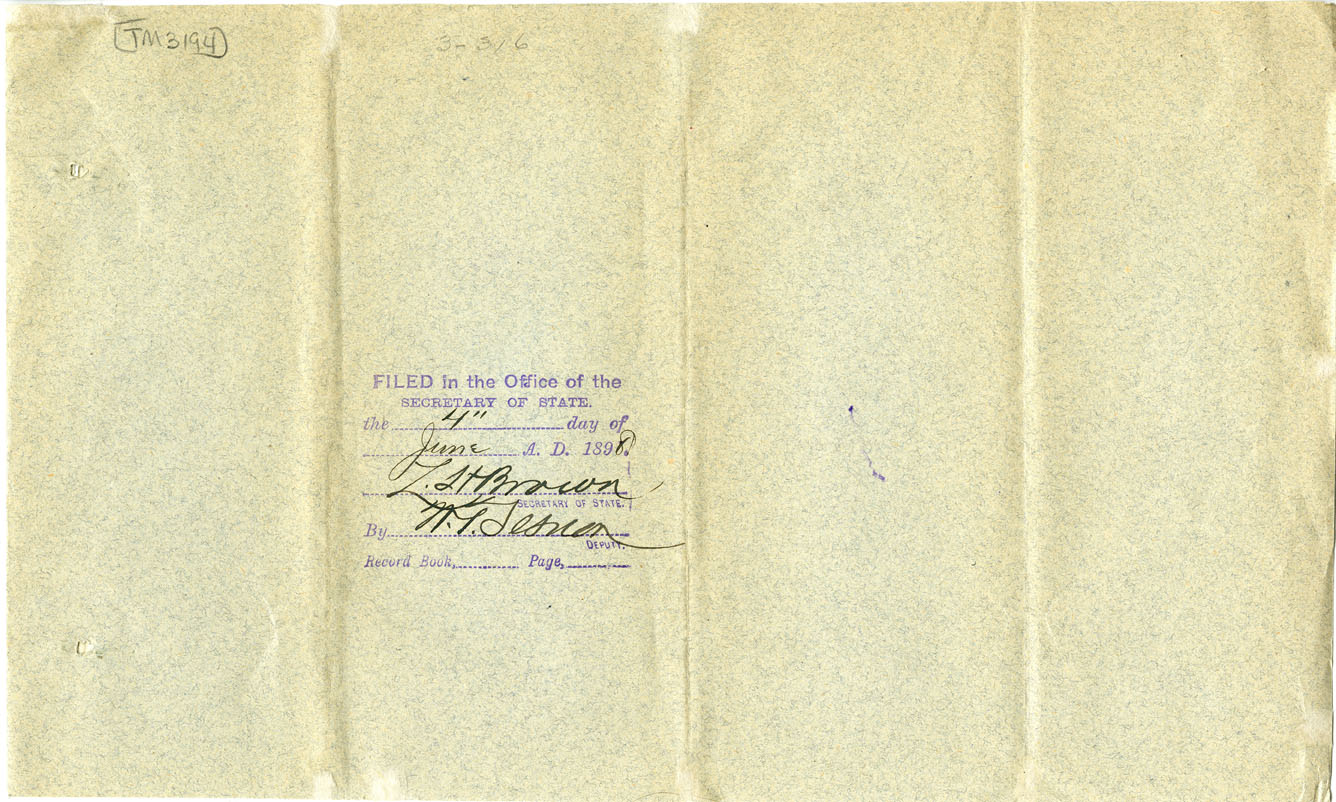 JM3194
3-316
FILED in the Office of the
SECRETARY OF STATE.
the 4" day of
June A. D. 1898.
L. H Brown
SECRETARY OF STATE.
By
DEPUTY.
Record Book, Page,